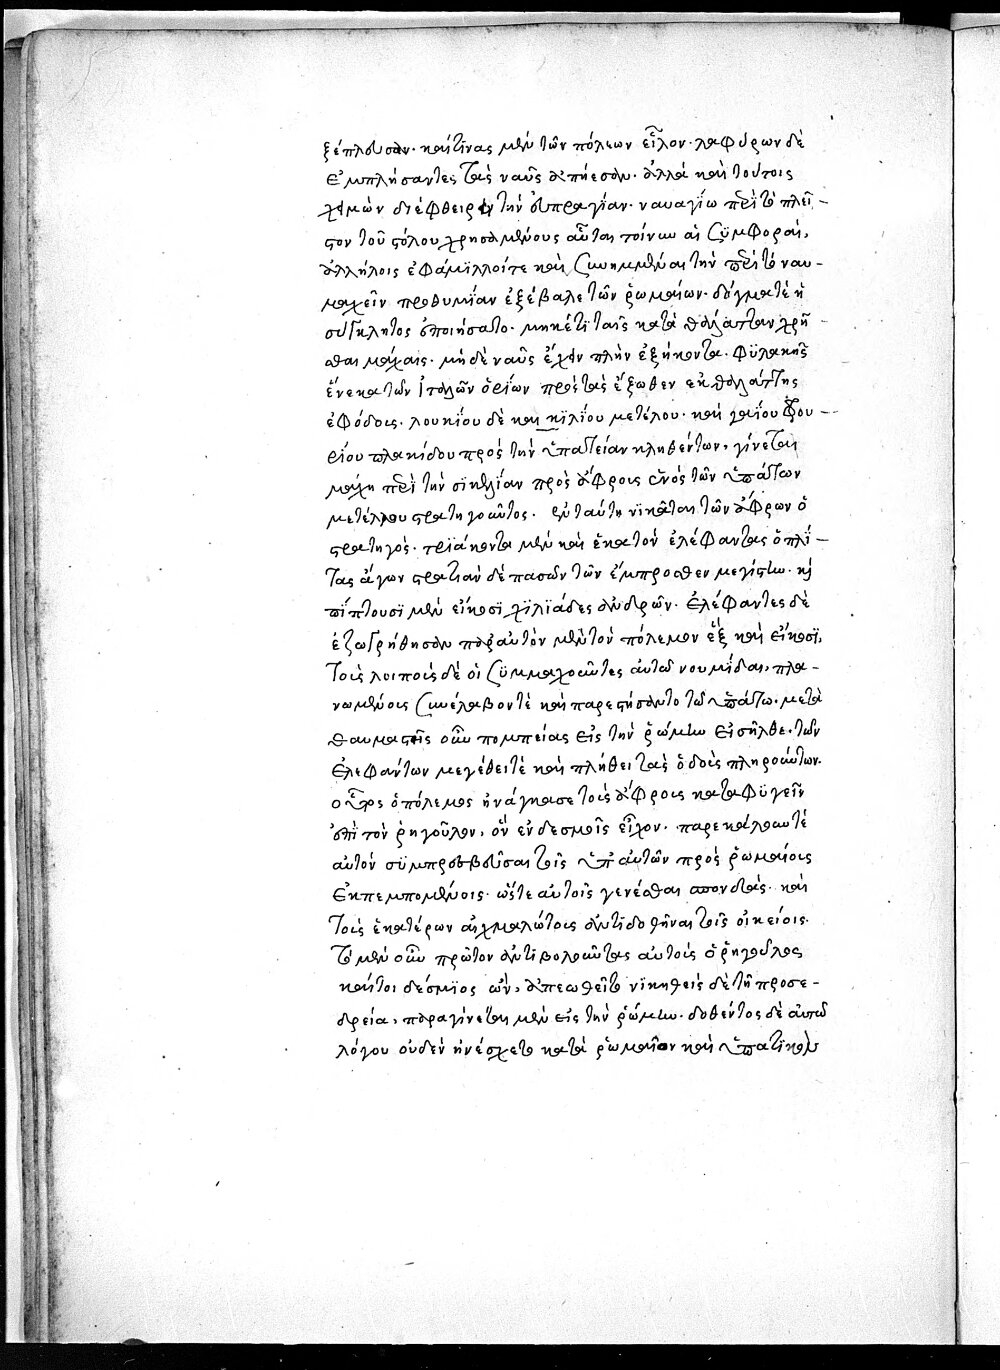 ξέπλευσαν. καί τινας μὲν τῶν πόλεων εἷλον. λαφύρων δὲ
ἐμπλήσαντες τὰς ναῦς ἀπῄεσαν. ἀλλὰ καὶ τούτοις
χειμὼν διέφθειρε τὴν εὐπραγίαν. ναυαγίῳ περὶ τὸ πλεῖ-
στον τοῦ στόλου χρησαμένους αὗται τοίνυν αἱ συμφοραὶ,
ἀλλήλοις ἐφάμιλλοί τε καὶ συνημμέναι τὴν περὶ τὸ ναυ-
μαχεῖν προθυμίαν ἐξέβαλε τῶν ῥωμαίων. δόγμα τὲ ἡ
σύγκλητος ἐποιήσατο. μηκέτι ταῖς κατὰ θάλατταν χρῆ-
σθαι μάχαις. μὴ δὲ ναῦς ἔχειν πλὴν ἑξήκοντα. φυλακῆς
ἕνεκα τῶν ἰταλῶν ὁρίων πρὸς τὰς ἔξωθεν ἐκ θαλάττης
ἐφόδους. λουκίου δὲ καικιλίου μετέλου. καὶ γαΐου φου-
ρίου πλακίδου πρὸς τὴν ὑπατείαν κληθέντων, γίνεται
μάχη περὶ τὴν σικελίαν πρὸς ἄφρους ἑνὸς τῶν ὑπάτων
μετέλλου στρατηγοῦντος. ἐν ταύτῃ νικᾶται τῶν ἄφρων ὁ
στρατηγὸς. τριάκοντα μὲν καὶ ἑκατὸν ἐλέφαντας ὁπλί-
τας ἄγων στρατιὰν δὲ πασῶν τῶν ἔμπροσθεν μεγίστην. κ
πίπτουσι μὲν εἴκοσι χιλιάδες ἀνδρῶν. ἐλέφαντες δὲ
ἐζωγρήθησαν παρ αὐτὸν μὲν τὸν πόλεμον ἓξ καὶ εἴκοσι.
τοὺς λοιποὺς δὲ οἱ συμμαχοῦντες αὐτῶ νουμίδαι, πλα-
νωμένους συνέλαβον τὲ καὶ παρεστήσαντο τῶ ὑπάτω. μετὰ
θαυμαστῆς οὖν πομπείας εἰς τὴν ῥώμην εἰσῆλθε. τῶν
ἐλεφάντων μεγέθει τὲ καὶ πλήθει τὰς ὁδοὺς πληρούντων.
οὗτος ὁ πόλεμος ἠνάγκασε τοὺς ἄφρους καταφυγεῖν
ἐπὶ τὸν ῥηγοῦλον, ὃν ἐν δεσμοῖς εἶχον. παρεκάλουν τὲ
αὐτὸν συμπρεσβεῦσαι τοῖς ὑπ αὐτῶν πρὸς ῥωμαίους
ἐκπεμπομένοις. ὥστε αὐτοῖς γενέσθαι σπονδὰς. καὶ
τοὺς ἑκατέρων αἰχμαλώτους ἀντιδοθῆναι τοῖς οἰκείοις.
τὸ μὲν οὖν πρῶτον ἀντιβολοῦντας αὐτοὺς ὁ ῥηγοῦλος
καίτοι δέσμιος ὢν, ἀπεωθεῖτο νικηθεὶς δὲ τῆ προσε-
δρεία, παραγίνεται μὲν εἰς τὴν ῥώμην. δοθέντος δὲ αὐτῶ
λόγου οὐδὲν ἠνέσχετο κατὰ ῥωμαῖον καὶ ὑπατικὸν